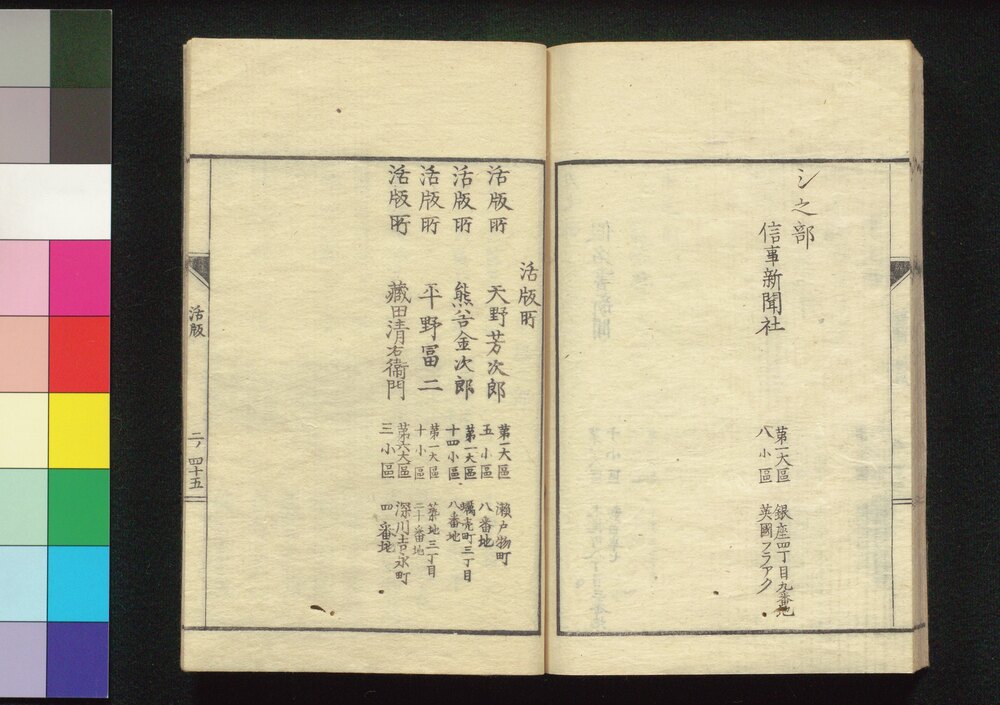 シ之部
信事新聞社
第一大區 銀座四丁目九番地
八小區 英國フラアク
活版所
活版所 天野芳次郎
第一大區 瀬戸物町
五小區 八番地
活版所 熊谷金次郎
第一大區 蠣壳町三丁目
十四小區 八番地
活版所 平野冨二
第一大區 築地三丁目
十小區 二十番地
活版所 藏田清右衞門
第六大區 深川吉永町
三小區 四番地
活版
二ノ四十五